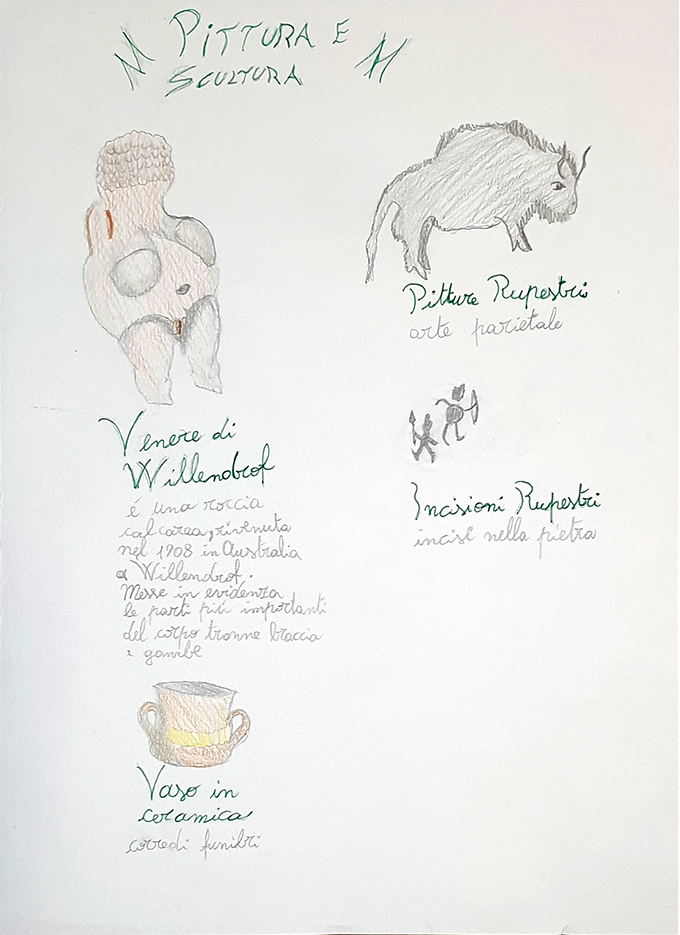 PITTURA E
SCULTURA
Venere di
Willendrof
é una roccia
calcarea, rivenuta
nel 1908 in Australia
a Willendrof.
Messe in evidenza
le parti più importanti
del corpo tronne braccia
e gambe
Vaso in
ceramica
corredi funibri
Pitture Rupestri
arte parietale
Incisioni Rupestri
incise nella pietra